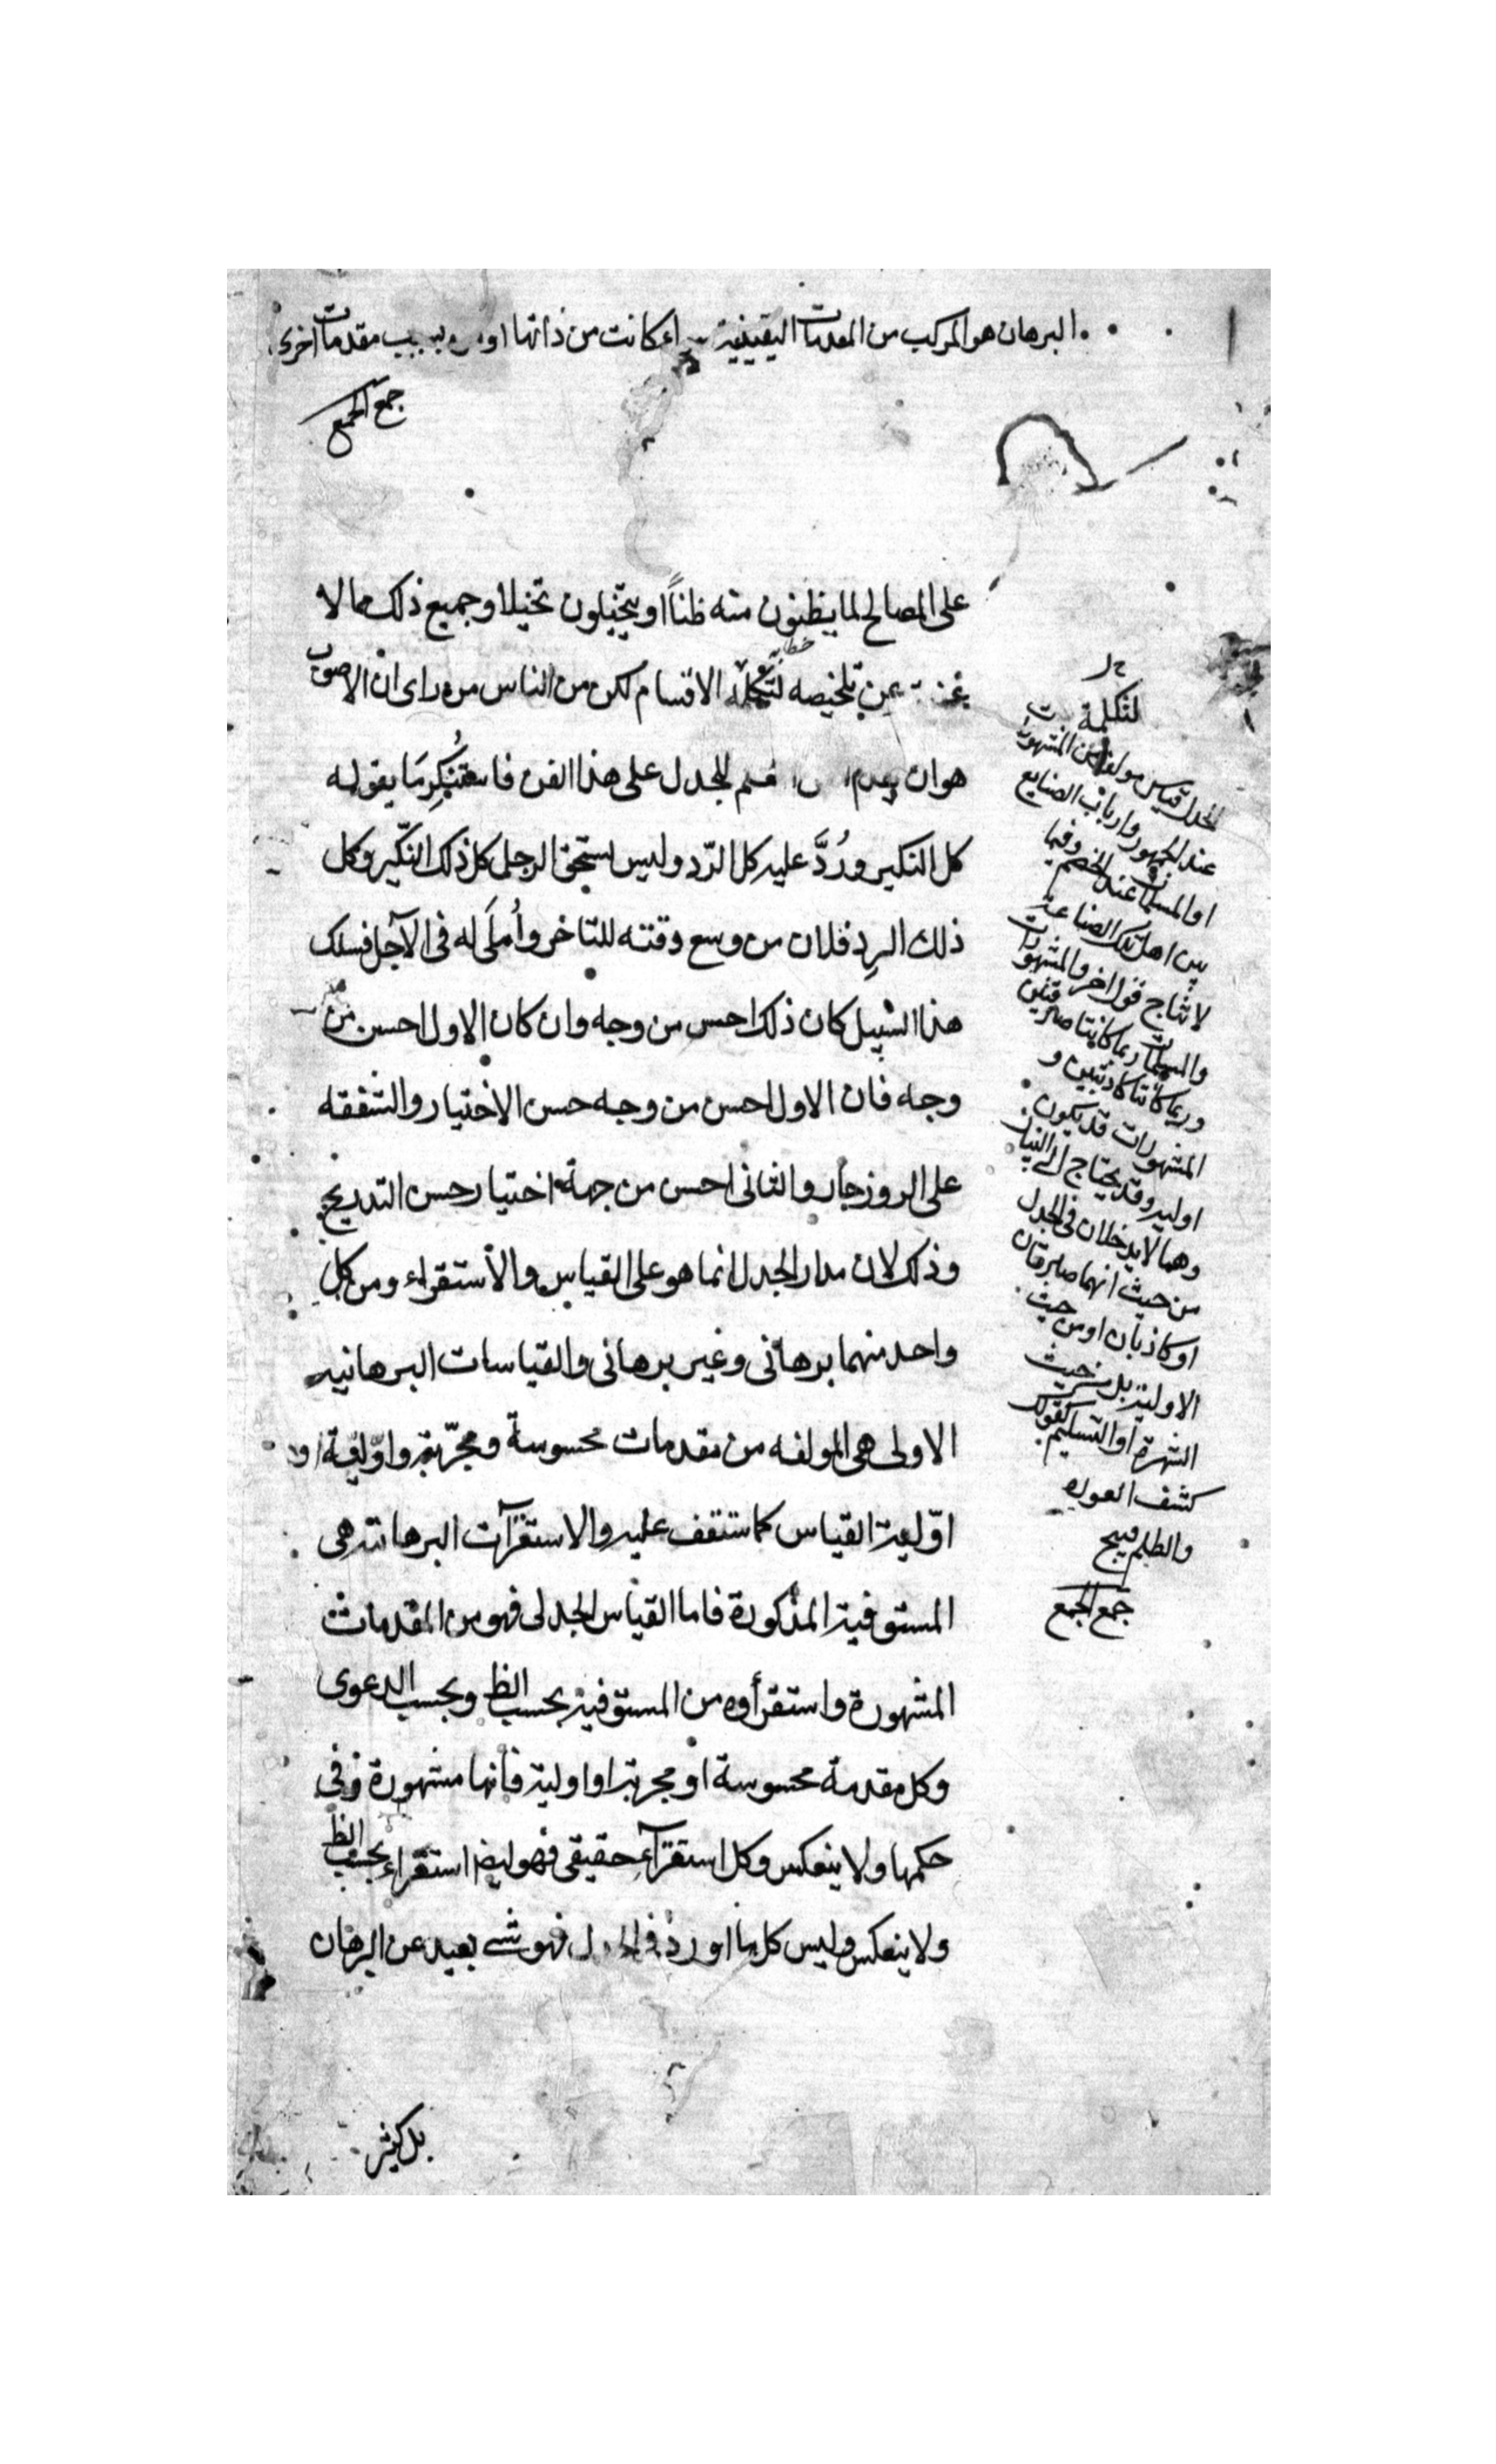 البرهان هو المركب من المقدمات اليقينية كانت من ذاتها او بسبب مقدمات اخرى
جمع الجمع
على المصالح لما يظنون منه ظناً او يتخيلون تخيلا وجميع ذلك مما لا
عن تلخيصه الاقسام لكن من الناس من راى ان الاصوب
هو ان للجدل على هذا الفن فاستُنكِر مَا يقوله
كل النكير ورُدَّ عليه كل الرّد وليس استحق الرجل كل ذلك النكّير وكل
ذلك الرد فلان من وسع وقته للتاخر واُملَى له فى الآجل فسلك
هذا السبيل كان ذلك احسن من وجه وان كان الاول احسن من
وجه فان الاول احسن من وجه حسن الاختيار والشفقه
على الروزجار والثانى احسن من جهة اختيار حسن التدريج
وذلك لان مدار الجدل انما هو على القياس والأستقراء ومن كل
واحد منهما برهانى وغير برهانى والقياسات البرهانيه
الاولى هى المولفه من مقدمات محسوسة ومجرّبة واوّلية او
اوّلية القياس كما ستقف عليه والاستقرآت البرهانية هى
المستوفية المذكورة فاما القياس الجدلى فهو من المقدمات
المشهورة واستقرأوه من المستوفية بحسب الظ وبحسب الدعوى
وكل مقدمة محسوسة او مجربة او اولية فانها مشهورة وفى
حكمها ولا ينعكس وكل استقرآء حقيقى فهو ايضا استقراء بحسب الظ
ولا ينعكس وليس كل ما اورد فى فهو شئ بعيد عن البرهان
بل كثير
لتكملة
الجدل قياس مولف من المشهورات
عند الجمهور وارباب الصنايع
او المسلمات عند الخصم وفيما
بين اهل تلك الصناعة
لانتاج قول اخر والمشهورات
والمسلمات ربما كانتا صادقتين
وربما كانتا كاذبتين و
المشهورات قد يكون
اولية وقد يحتاج الى البيان
وهما لا يدخلان فى الجدل
من حيث انهما صادقان
او كاذبان او من حيث
الاولية بل من حيث
الشهرة او التسليم كقولك
كشف العورة
والظلم قبيح
جمع الجمع